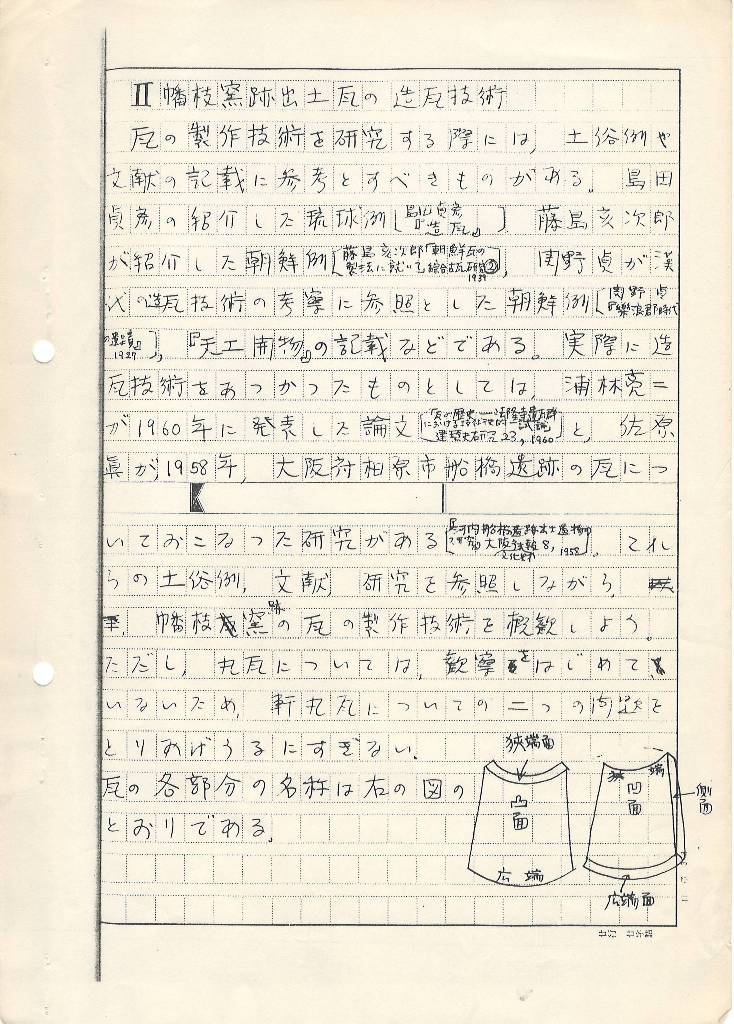 Ⅱ 幡枝窯跡出土瓦の造瓦技術
瓦の製作技術を研究する際には，土俗例や
文献の記載に参考とすべきものがある。島田
貞彦の紹介した琉球例〔島田貞彦『造瓦』〕藤島亥次郎
が紹介した朝鮮例〔藤島亥次郎「朝鮮瓦の製法に就いて」綜合古瓦研究② 1939〕，関野貞が漢
代の造瓦技術の考察に参照とした朝鮮例〔関野貞『樂浪郡時代
の遺蹟』1927〕，『天工開物』の記載などである。実際に造
瓦技術をあつかつたものとしては，浦林亮二
が1960年に発表した論文〔「瓦の歴史 建築史研究23，1960〕と，佐原
眞が，1958年，大阪府柏原市船橋遺跡の瓦につ
いておこなつた研究がある〔『河内船橋遺跡出土遺物の 大阪府文化財 8，1958〕。これ
らの土俗例，文献，研究を参照しながら，
幡枝窯跡の瓦の製作技術を概観しよう。
ただし，丸瓦については，観察をはじめて
いないため，軒丸瓦についての二つの問題を
とりあげうるにすぎない．
瓦の各部分の名称は右の図の
とおりである。
狭端面
凸面
広端
狭端
凹面
側面
広端面